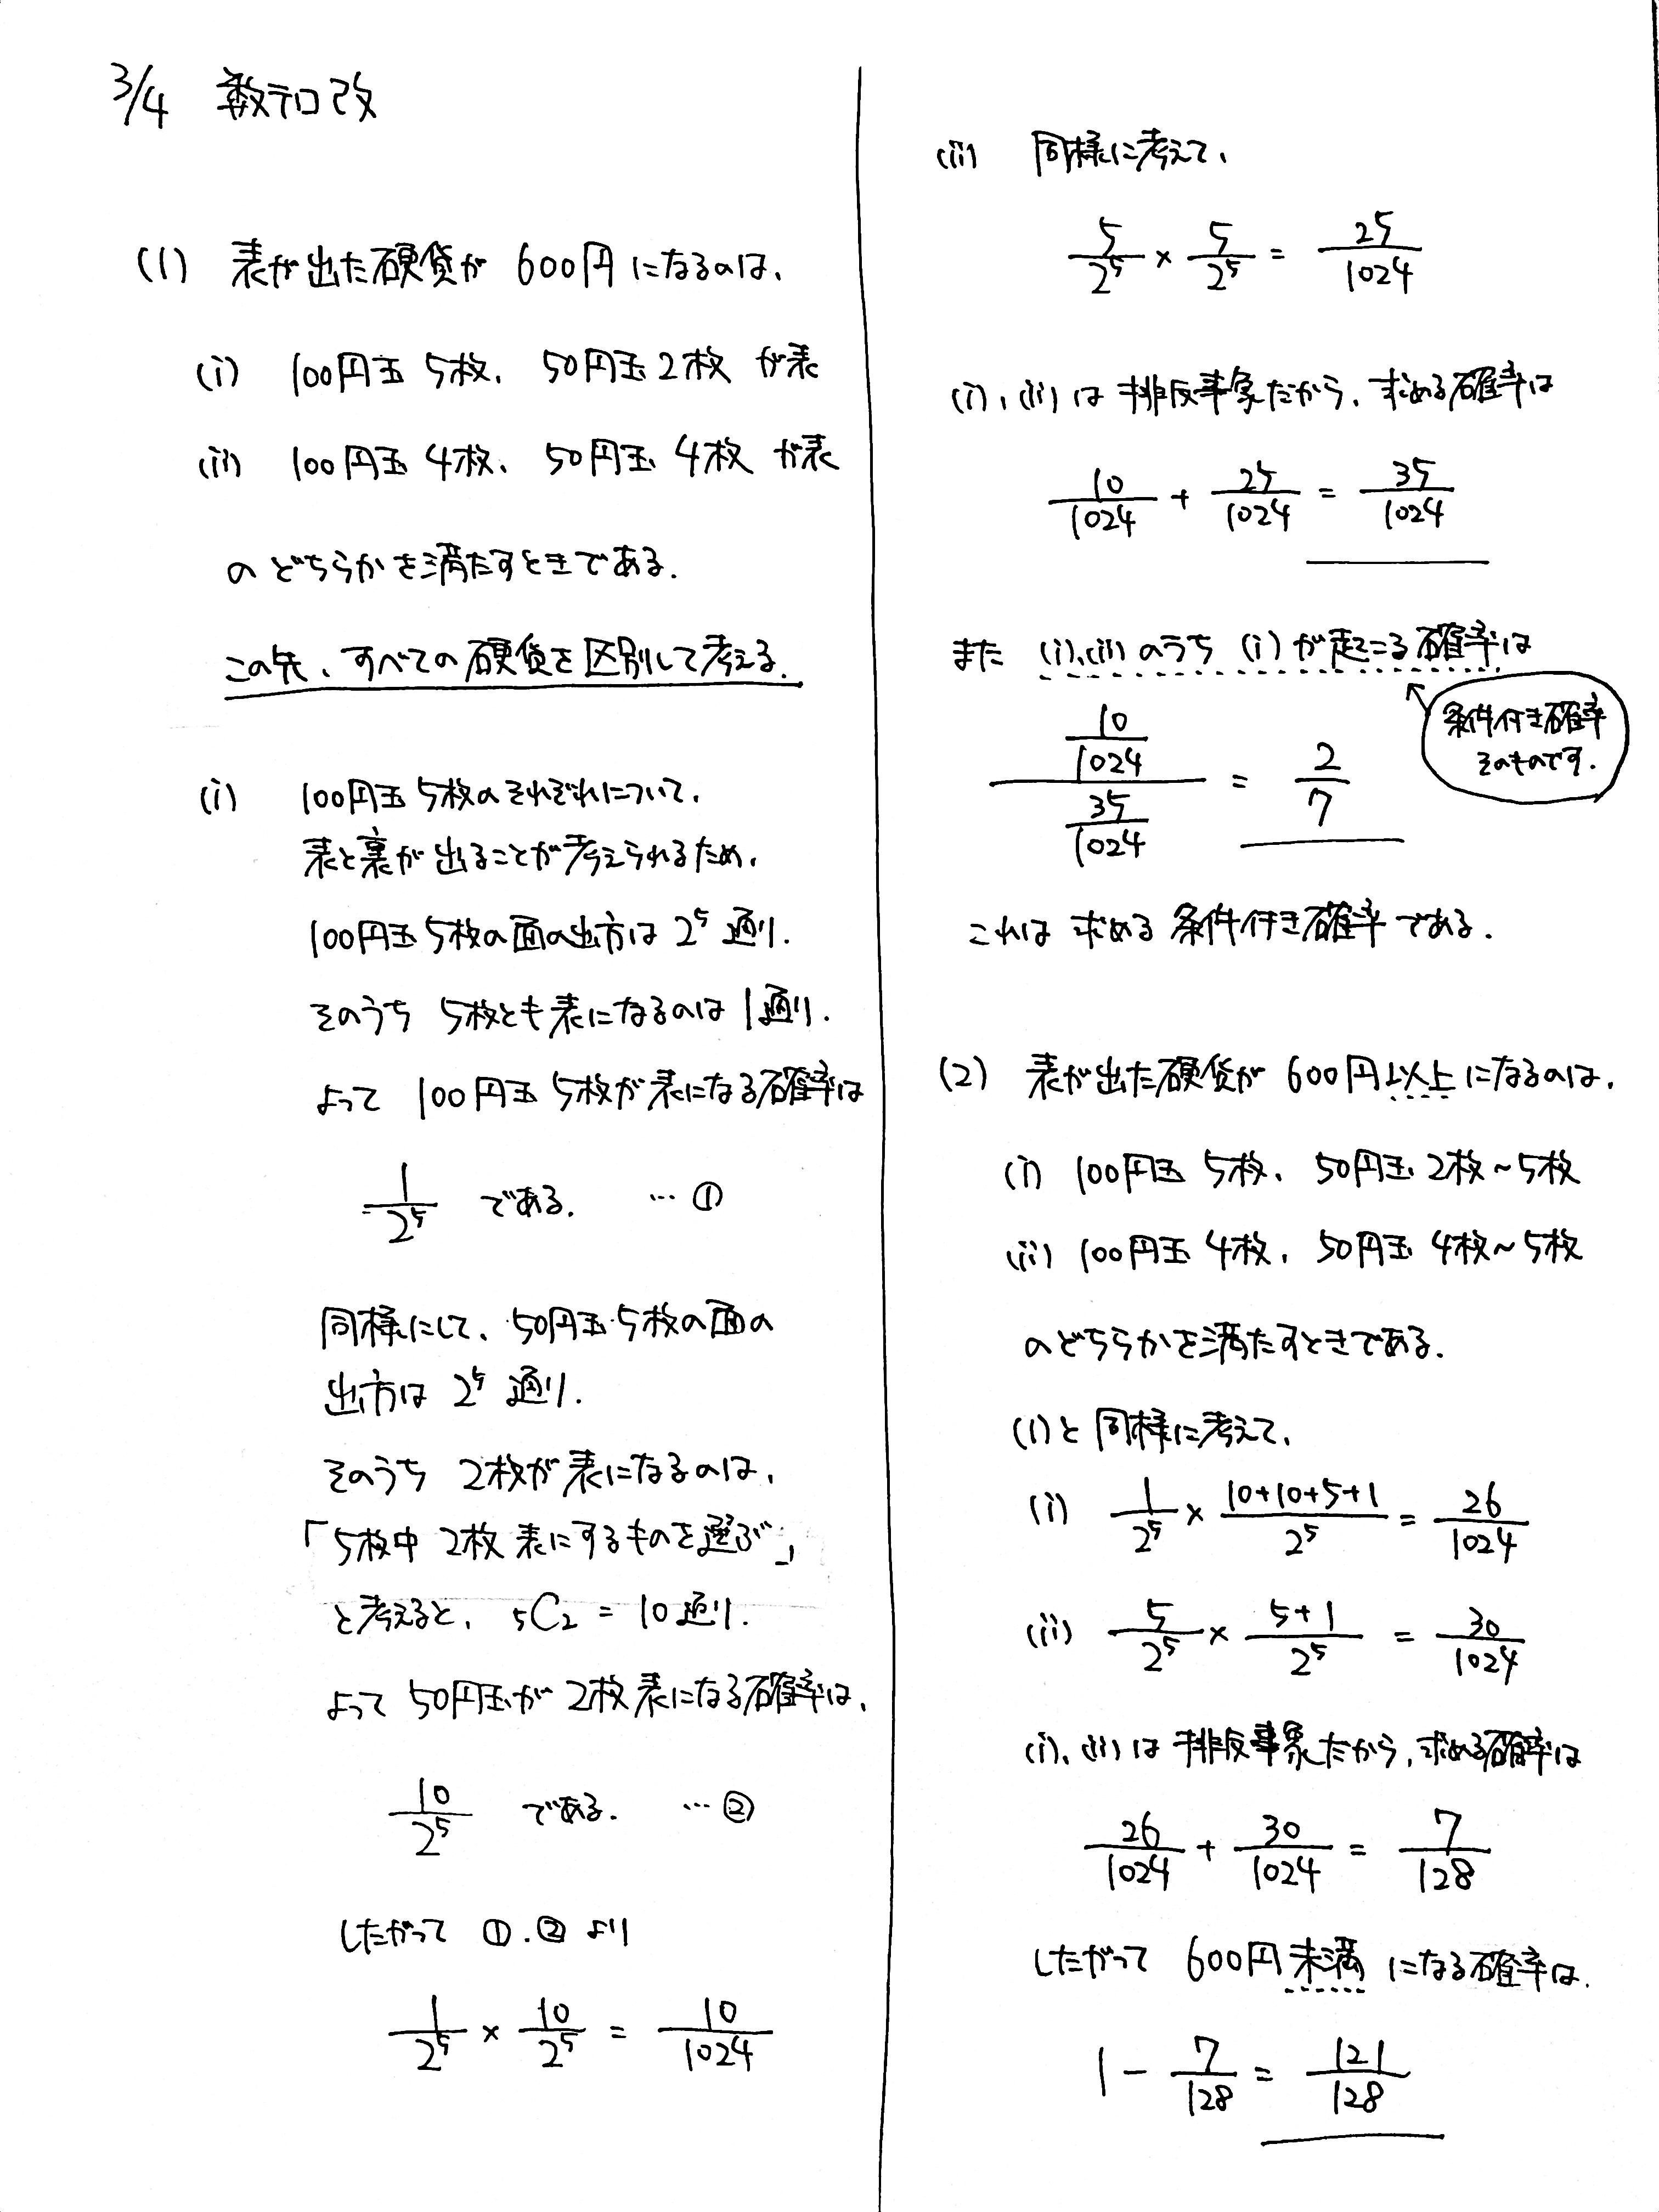 3/4 数テロ改
(1) 表が出た硬貨が 600円になるのは、
(i) 100円玉 5枚、50円玉 2枚 が表
(ii) 100円玉 4枚、50円玉 4枚 が表
のどちらかを満たすときである.
この先、すべての硬貨を区別して考える.
(i) 100円玉 5枚のそれぞれについて、
表と裏が出ることが考えられるため、
100円玉 5枚の面の出方は 2^5 通り.
そのうち 5枚とも表になるのは 1通り.
よって 100円玉 5枚が表になる確率は
1/2^5 である. … ①
同様にして、50円玉 5枚の面の
出方は 2^5 通り.
そのうち 2枚が表になるのは、
「5枚中 2枚 表にするものを選ぶ」
と考えると、5C2 = 10 通り.
よって 50円玉が 2枚表になる確率は、
10/2^5 である. … ②
したがって ①、② より
1/2^5 × 10/2^5 = 10/1024
(ii) 同様に考えて、
5/2^5 × 5/2^5 = 25/1024
(i)、(ii) は 排反事象だから、求める確率は
10/1024 + 25/1024 = 35/1024
また (i)、(ii) のうち (i) が起こる確率は
条件付き確率
そのものです.
(10/1024)/(35/1024) = 2/7
これは 求める 条件付き確率 である.
(2) 表が出た硬貨が 600円以上になるのは、
(i) 100円玉 5枚、50円玉 2枚~5枚
(ii) 100円玉 4枚、50円玉 4枚~5枚
のどちらかを満たすときである.
(1)と同様に考えて、
(i) 1/2^5 × (10+10+5+1)/2^5 = 26/1024
(ii) 5/2^5 × (5+1)/2^5 = 30/1024
(i)、(ii) は 排反事象だから、求める確率は
26/1024 + 30/1024 = 7/128
したがって 600円未満 になる確率は、
1 − 7/128 = 121/128